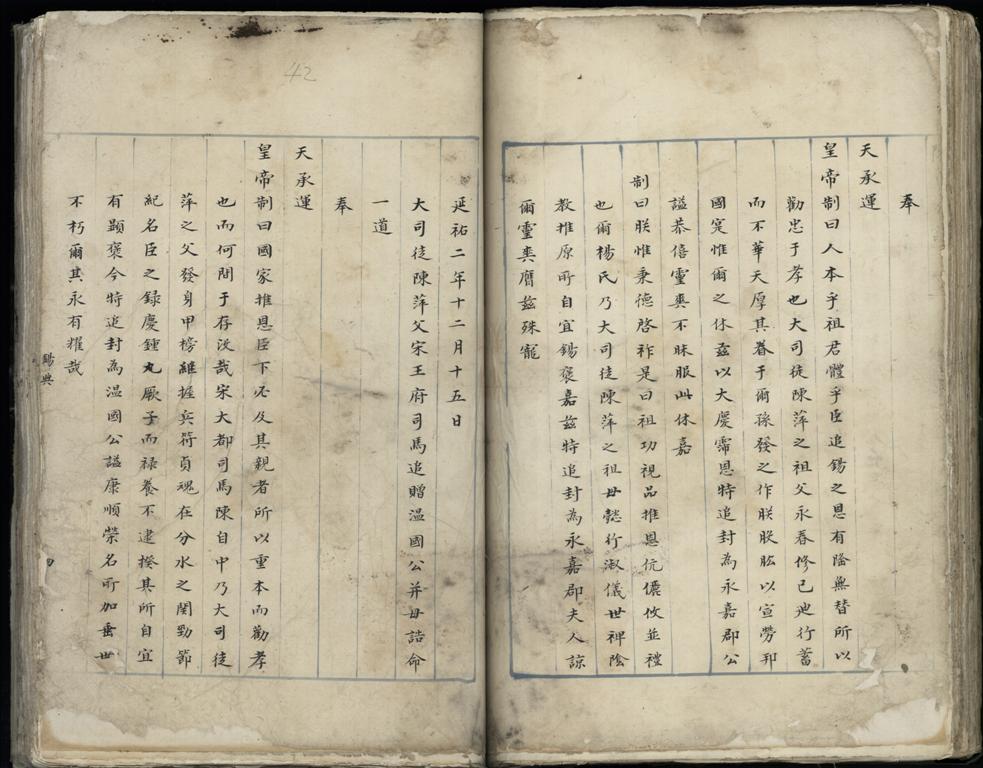 奉
天承運
皇帝制曰人本乎祖君體乎臣追錫之恩有隆無替所以
勸忠于孝也大司徒陳萍之祖父永春修己迪行蓄
而不華天厚其眷于爾孫發之作朕股肱以宣勞邦
國寔惟爾之休茲以大慶霈恩特追封為永嘉郡公
謚恭僖靈爽不昧服此休嘉
制曰朕惟秉德啓祚是曰祖功視品推恩伉儷攸並禮
也爾楊氏乃大司徒陳萍之祖母懿行淑儀世裨陰
教推原所自宜錫褒嘉茲特追封為永嘉郡夫人諒
爾靈爽膺茲殊寵
延祐二年十二月十五日
大司徒陳萍父宋王府司馬追贈溫國公并母誥命
一道
奉
天承運
皇帝制曰國家推恩臣下必及其親者所以重本而勸孝
也而何間于存沒哉宋大都司馬陳自中乃大司徒
萍之父發身甲榜雖握兵符貞魂在分水之関勁節
紀名臣之録慶鍾丸厥子而祿養不逮揆其所自宜
有顯褒今特追封為溫國公謚康順榮名所加垂世
不朽爾其永有耀哉
錫典
42